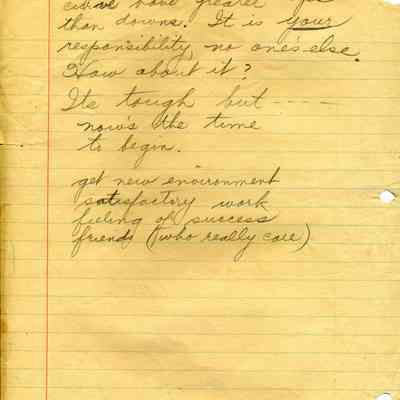 have greater
than downs. It is your
responsibility, no one's else.
How about it?
Its tough but - - - -
now's the time
to begin.
get new environment
satisfactory work
feeling of success
friends (who really care)